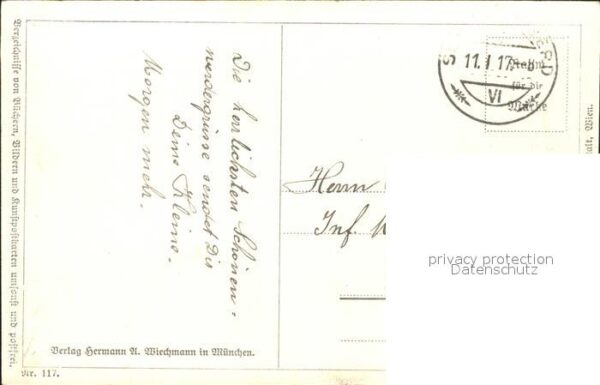 Verzeichnisse von Büchern, Bildern und Kunstpostkarten umsonst und postfrei.
Die herrlichsten Schönen-
wedergrüsse sendet Dir
Deine Kleine.
Morgen mehr.
Verlag Hermann A. Wiechmann in München.
Nr. 117.
11. I. 17
VI
für die
Marke
Wien.
Herrn
Inf.
privacy protection
Datenschutz